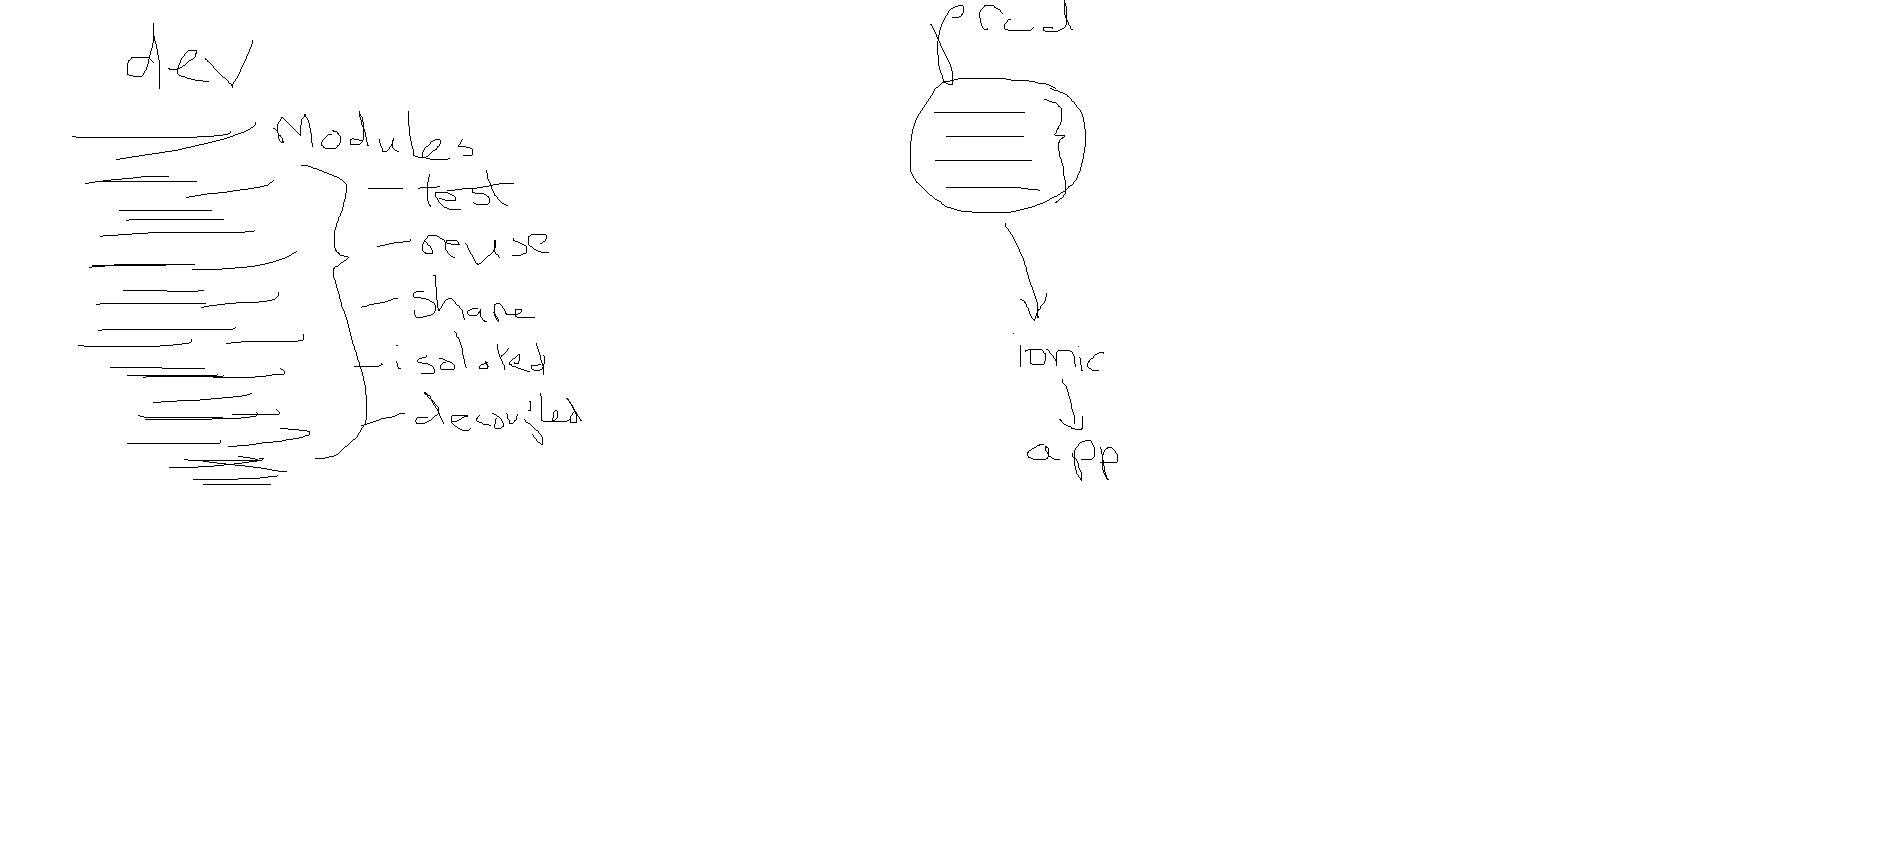 dev
Modules
- test
- reuse
- share
- isolated
- decoupled
prod
ionic
app